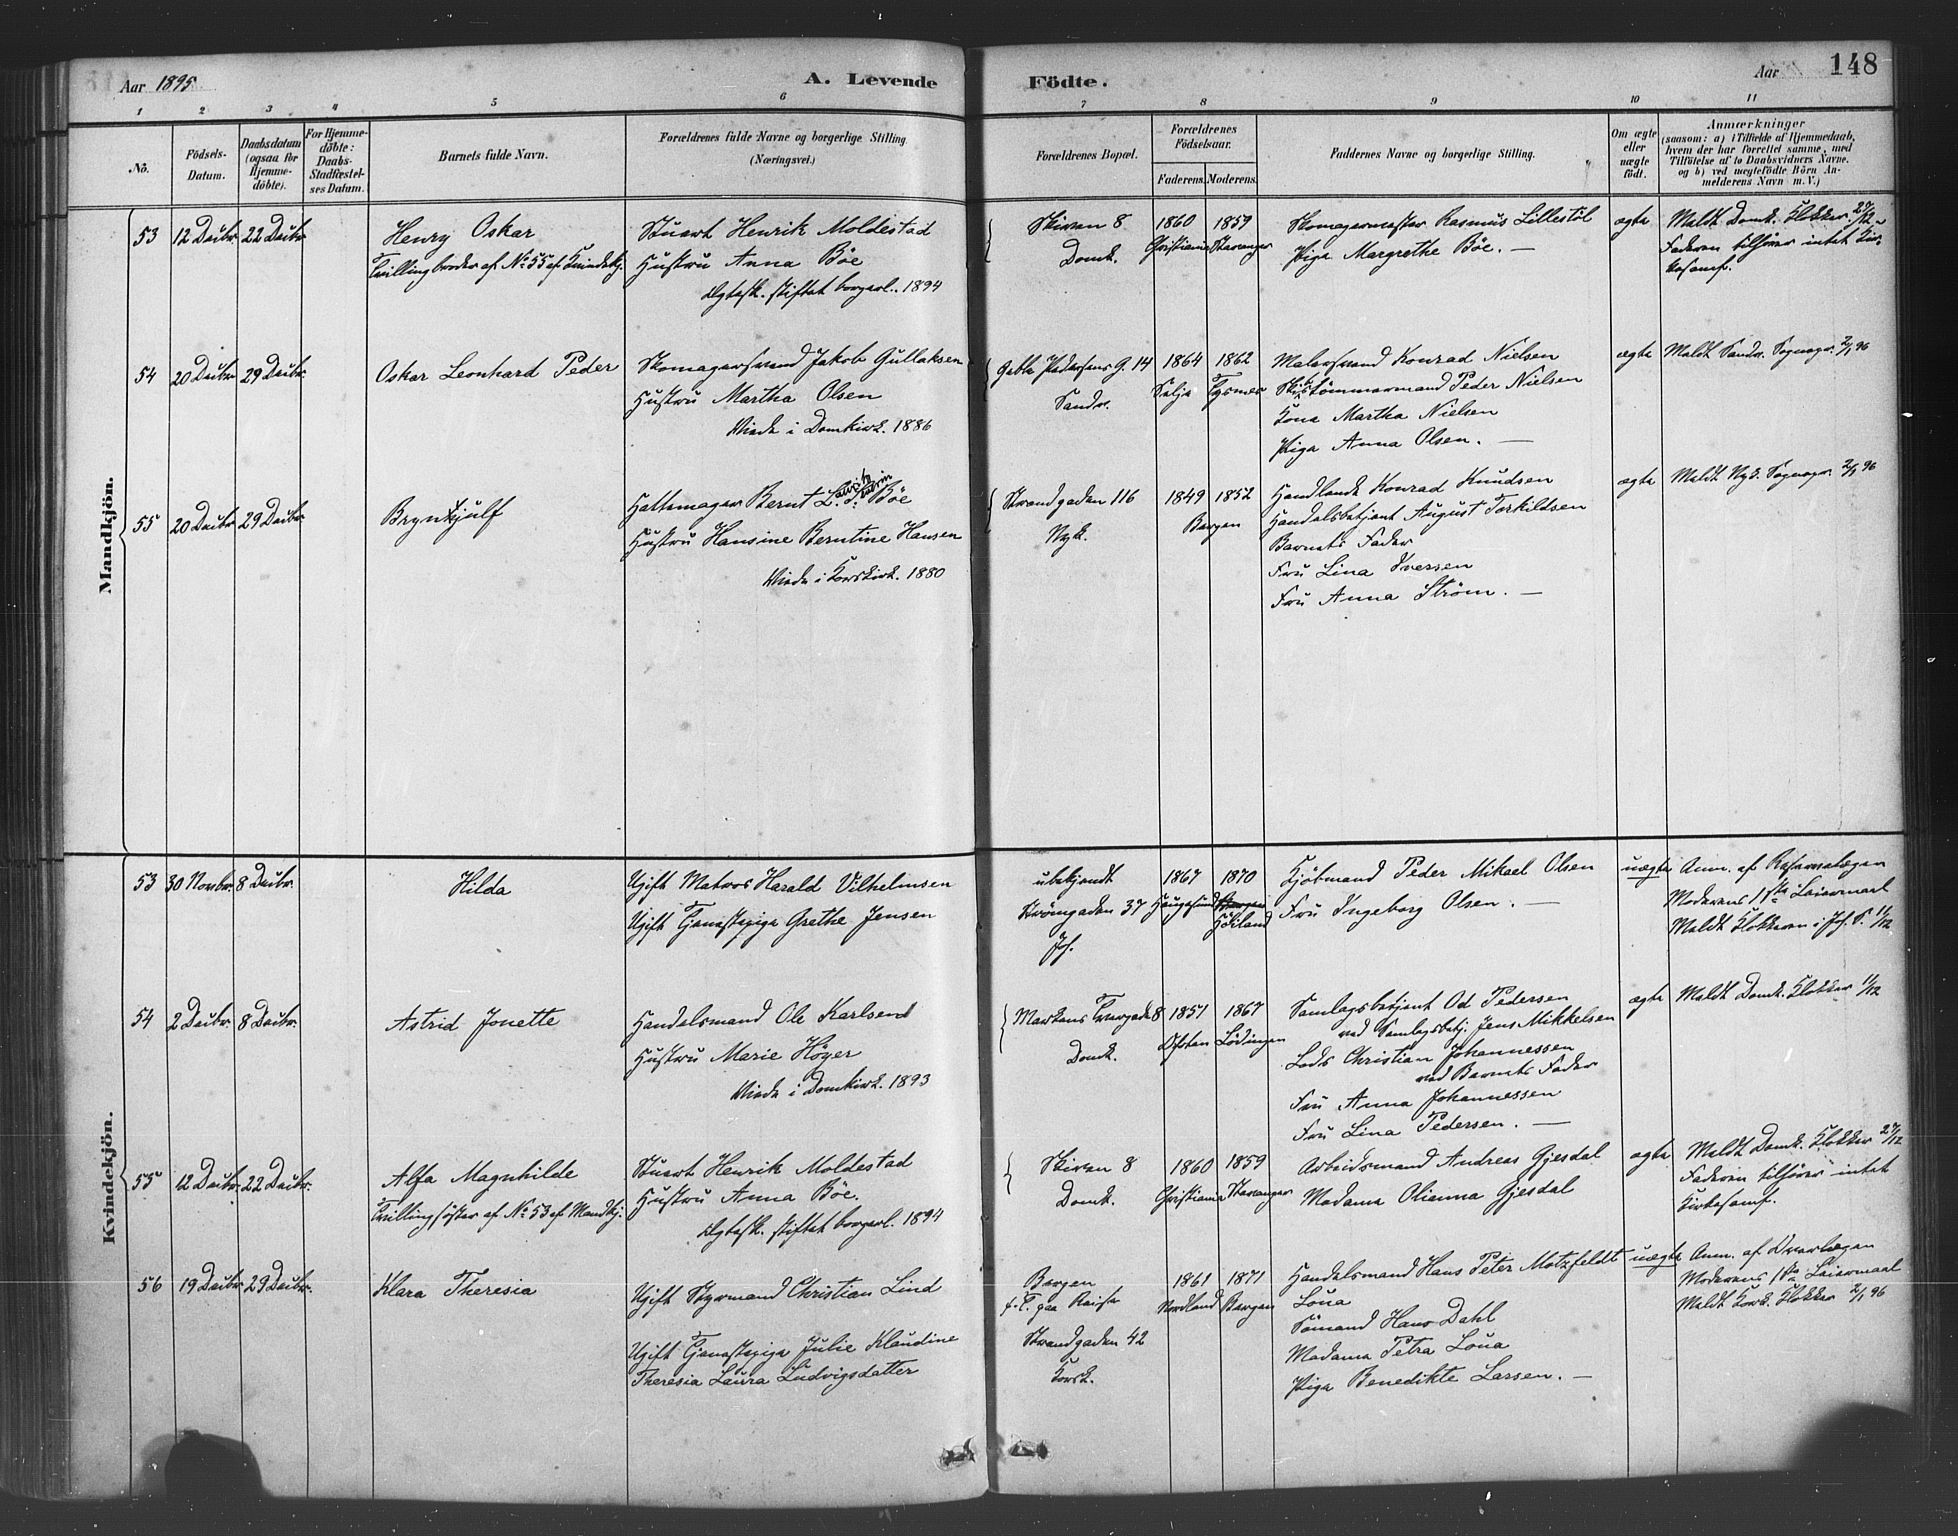 Aar 1895
A. Levende
Födte.
Aar
148
1 2 3 4 5 6 7 8 9 10 11
No.
Födsels-
Datum.
Daabsdatum
(ogsaa for
Hjemme-
döbte).
For Hjemme-
döbte:
Daabs-
Stadfæstel-
ses Datum.
Barnets fulde Navn.
Forældrenes fulde Navne og borgerlige Stilling.
(Næringsvei.)
Forældrenes Bopæl.
Forældrenes
Födselsaar.
Faderens. Moderens.
Faddernes Navne og borgerlige Stilling.
Om ægte
eller
uægte
født.
Anmærkninger
(saasom: a) i Tilfælde af Hjemmedaab,
hvem der har forrettet samme, med
Tilföielse af to Daabsvidners Navne.
og b) ved uægtefödte Börn An-
melderens Navn m. V.)
Mandkjön.
53
12 Decbr.
22 Decbr.
Henry Oskar
Tvillingbroder af No 55 af Kvindekj.
Stuert Henrik Moldestad
Hustru Anna Böe
Ægtesk. stiftet borgerl. 1894
Skiven 8
Domk.
1860
Christiania
1859
Stavanger
Skomagermester Rasmus Lillestöl
Pige Margrethe Böe. —
ægte
Meldt Domk. Klokker 27/12
Faderen tilhører intet Kir-
kesamf.
54
20 Decbr.
29 Decbr.
Oskar Leonhard Peder
Skomagersvend Jakob Gullaksen
Hustru Martha Olsen
Viede i Domkirk. 1886
Gable Pedersens G. 14
Sandv.
1864
Selje
1862
Tysnes
Malersvend Konrad Nielsen
Skibstömmermand Peder Nielsen
Kone Martha Nielsen
Pige Anna Olsen. —
ægte
Meldt Sandv. Sognepr. 2/1 96
55
20 Decbr.
29 Decbr.
Brynkjulf
Hattemager Bernt L. S. Böe
Hustru Hansine Berntine Hansen
Viede i Korskirk. 1880
Strandgaden 116
Nyk.
1849
1852
Bergen
Handlende Konrad Knudsen
Handelsbetjent August Torkildsen
Barnets Fader
Fru Lina Iversen
Fru Anna Ström. —
ægte
Meldt Nyk. Sognepr. 2/1 96
Kvindekjön.
53
30 Novbr.
8 Decbr.
Hilda
Ugift Matros Harald Vilhelmsen
Ugift Tjenestepige Grethe Jensen
ubekjendt
Strömgaden 37
Joh.
1867
Haugesund
1870
Bergen
Höiland
Kjöbmand Peder Mikael Olsen
Fru Ingeborg Olsen. —
uægte
Anm. af Reservelægen
Moderens 1ste Leiermaal
Meldt Klokkeren i Joh. K. 11/12
54
2 Decbr.
8 Decbr.
Astrid Jonette
Handelsmand Ole Karlsen
Hustru Marie Höyer
Viede i Domkirk. 1893
Markens Tvergade 8
Domk.
1851
Ofoten
1867
Lödingen
Samlagsbetjent Od Pedersen
ved Samlagsbetj. Jens Mikkelsen
Lods Christian Johannessen
ved Barnets Fader
Fru Anna Johannessen
Fru Lina Pedersen. —
ægte
Meldt Domk. Klokker 11/12
55
12 Decbr.
22 Decbr.
Alfa Magnhilde
Tvillingsöster af No 53 af Mandkj.
Stuert Henrik Moldestad
Hustru Anna Böe.
Ægtesk. stiftet borgerl. 1894
Skiven 8
Domk.
1860
Christiania
1859
Stavanger
Arbeidsmand Andreas Gjesdal
Madame Olianna Gjesdal
ægte
Meldt Domk. Klokker 27/12
Faderen tilhører intet
Kirkesamf.
56
19 Decbr.
29 Decbr.
Klara Theresia
Ugift Styrmand Christian Lind
Ugift Tjenestepige Julie Klaudine
Theresia Laura Ludvigsdatter
Bergen
f. T. paa Reise
Strandgaden 42
Korsk.
1861
Nordland
1871
Bergen
Handelsmand Hans Peter Motzfeldt
Loua
Sömand Hans Dahl
Madame Petra Loua
Pige Benedikte Larsen. —
uægte
Anm. af Overlægen
Moderens 1ste Leiermaal
Meldt Korsk. Klokker 2/1 96